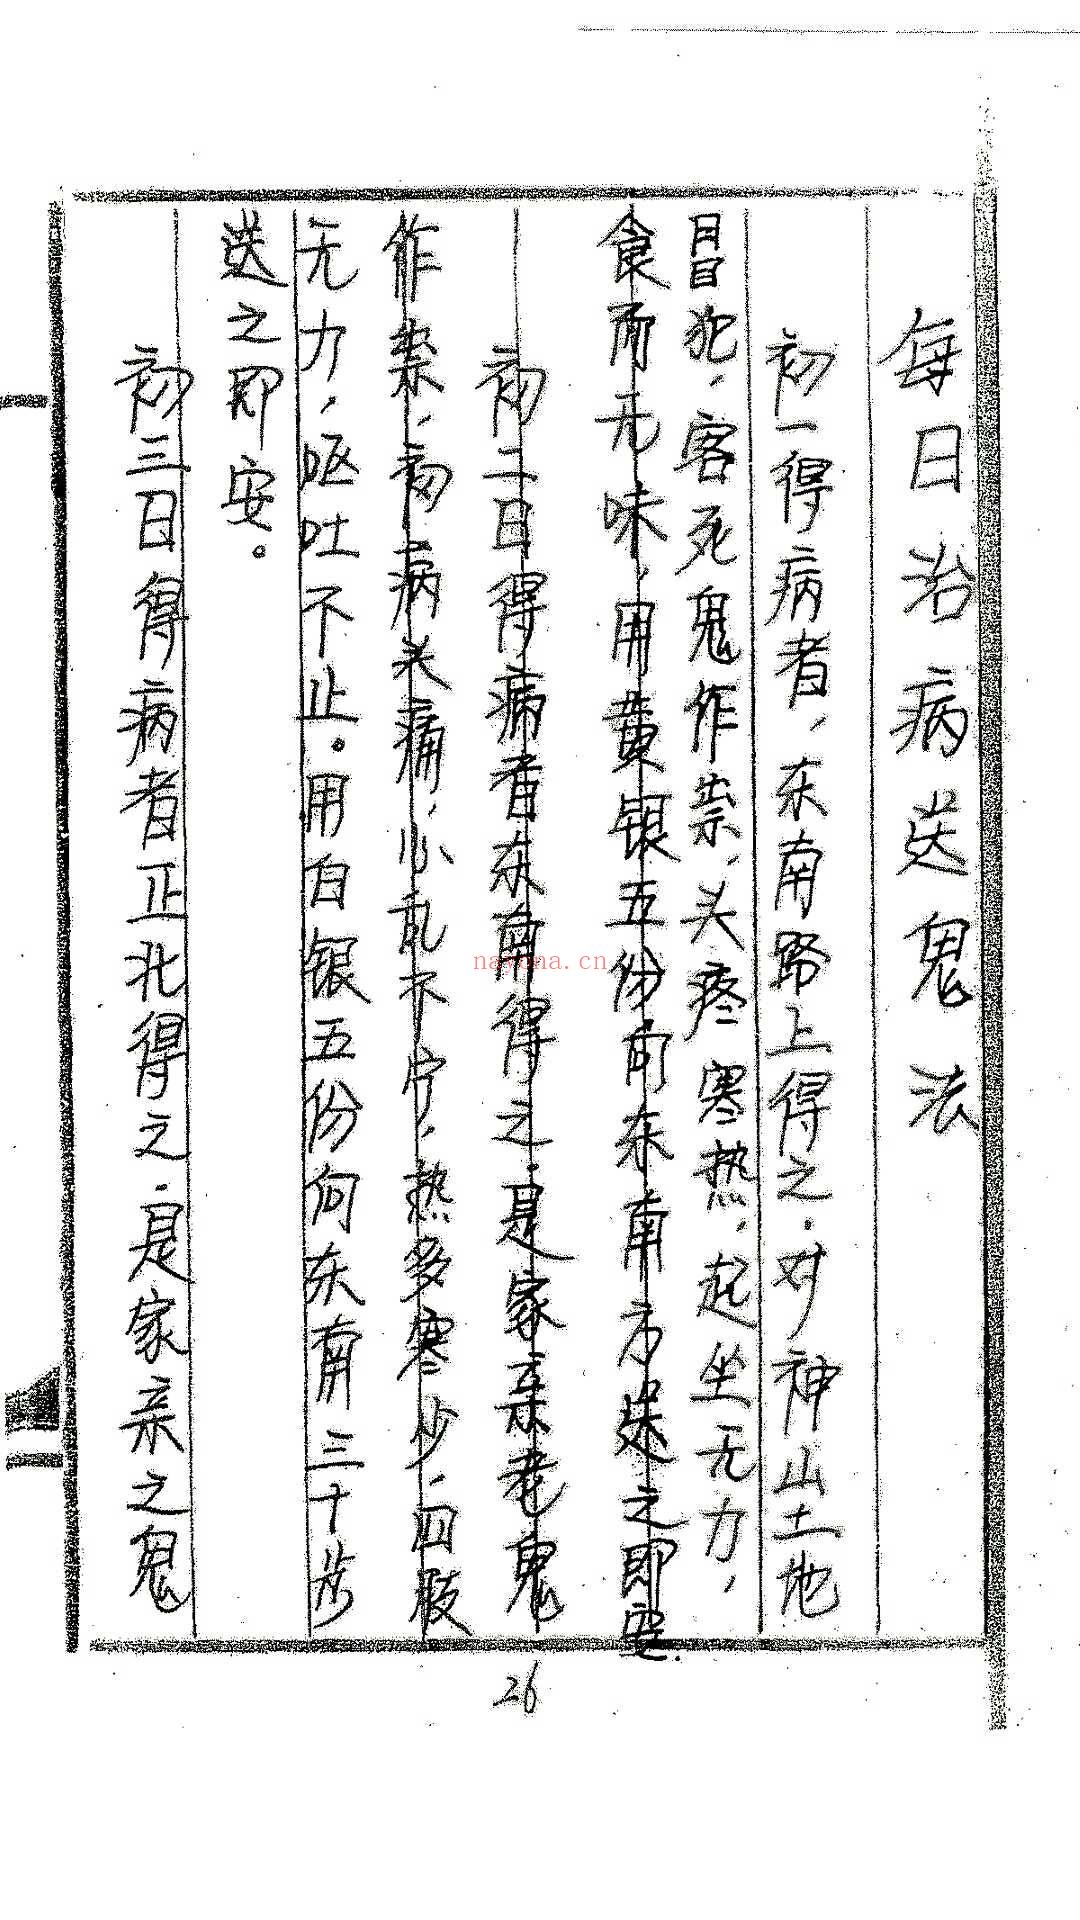 每日治病送鬼法
初一得病者，东南路上得之．对神山土地
冒犯，客死鬼作祟，头疼寒热，起坐无力，
食而无味，用黄银五份向东南方送之即安．
初二日得病者东南得之．是家亲老鬼
作祟，初病头痛，心乱不宁，热多寒少，四肢
无力，呕吐不止。用白银五份向东南三十步
送之即安。
初三日得病者正北得之．是家亲之鬼
26
nayona.cn